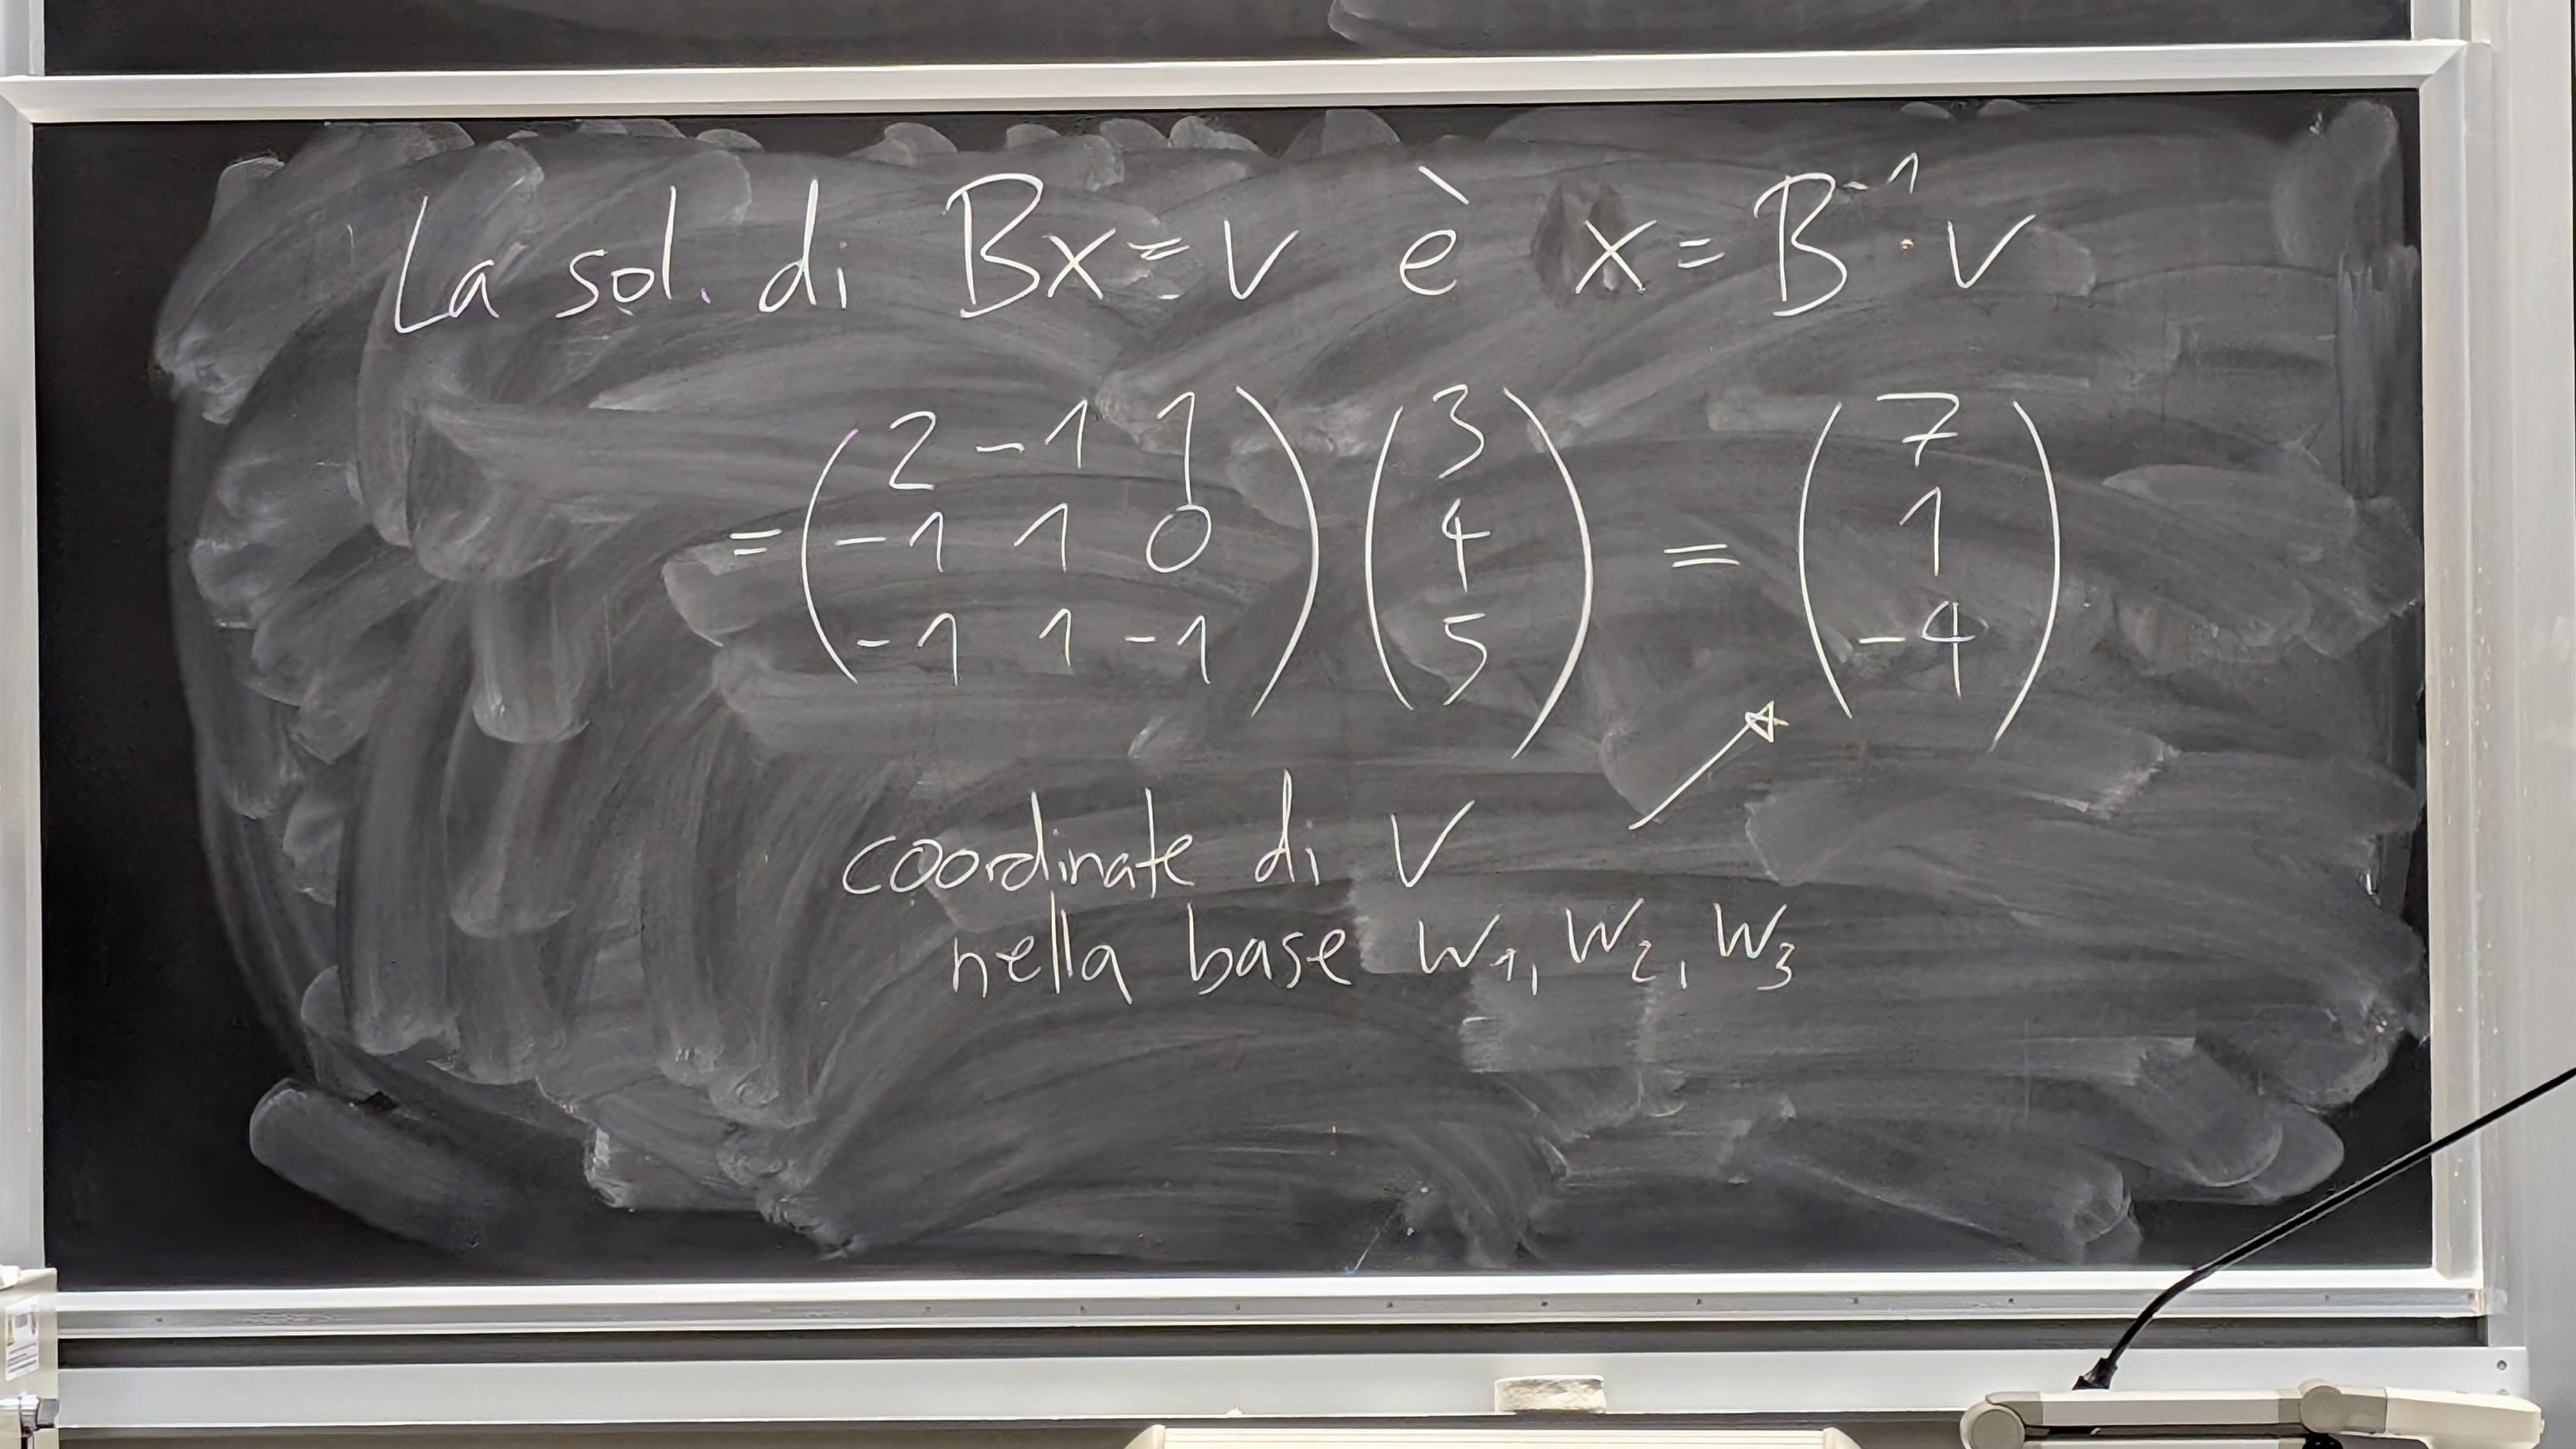 La sol. di Bx = v è x = B⁻¹·v
= (2 -1 1) (3) (7)
(-1 1 0) (4) = (1)
(-1 1 -1) (5) (-4)
coordinate di v
nella base w₁, w₂, w₃